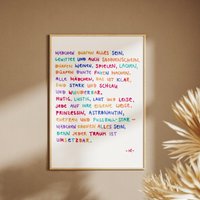 MÄDCHEN DÜRFEN ALLES SEIN,
GEWITTER UND AUCH SONNENSCHEIN,
DÜRFEN WEINEN, SPIELEN, LACHEN,
DÜRFEN BUNTE FADEN MACHEN.
ALLE MÄDCHEN, DAS IST KLAR,
SIND STARK UND SCHLAU
UND WUNDERBAR.
MUTIG, LUSTIG, LAUT UND LEISE,
JEDE AUF IHRE EIGENE WEISE.
PRINZESSIN, ASTRONAUTIN,
CHEFFRAU UND FUSSBALL-STAR -
MÄDCHEN DÜRFEN ALLES SEIN,
DENN JEDER TRAUM IST
UMSETZBAR.